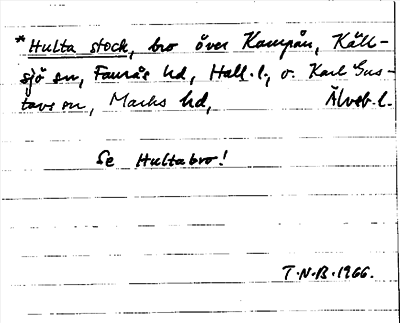 *Hulta stock, bro över Kampån, Käll-
sjö sn, Faurås hd, Hall.l., o. Karl Gus-
tavs sn, Marks hd, Älvsb.l.
Se Hultabro!
T.N.B.1966.